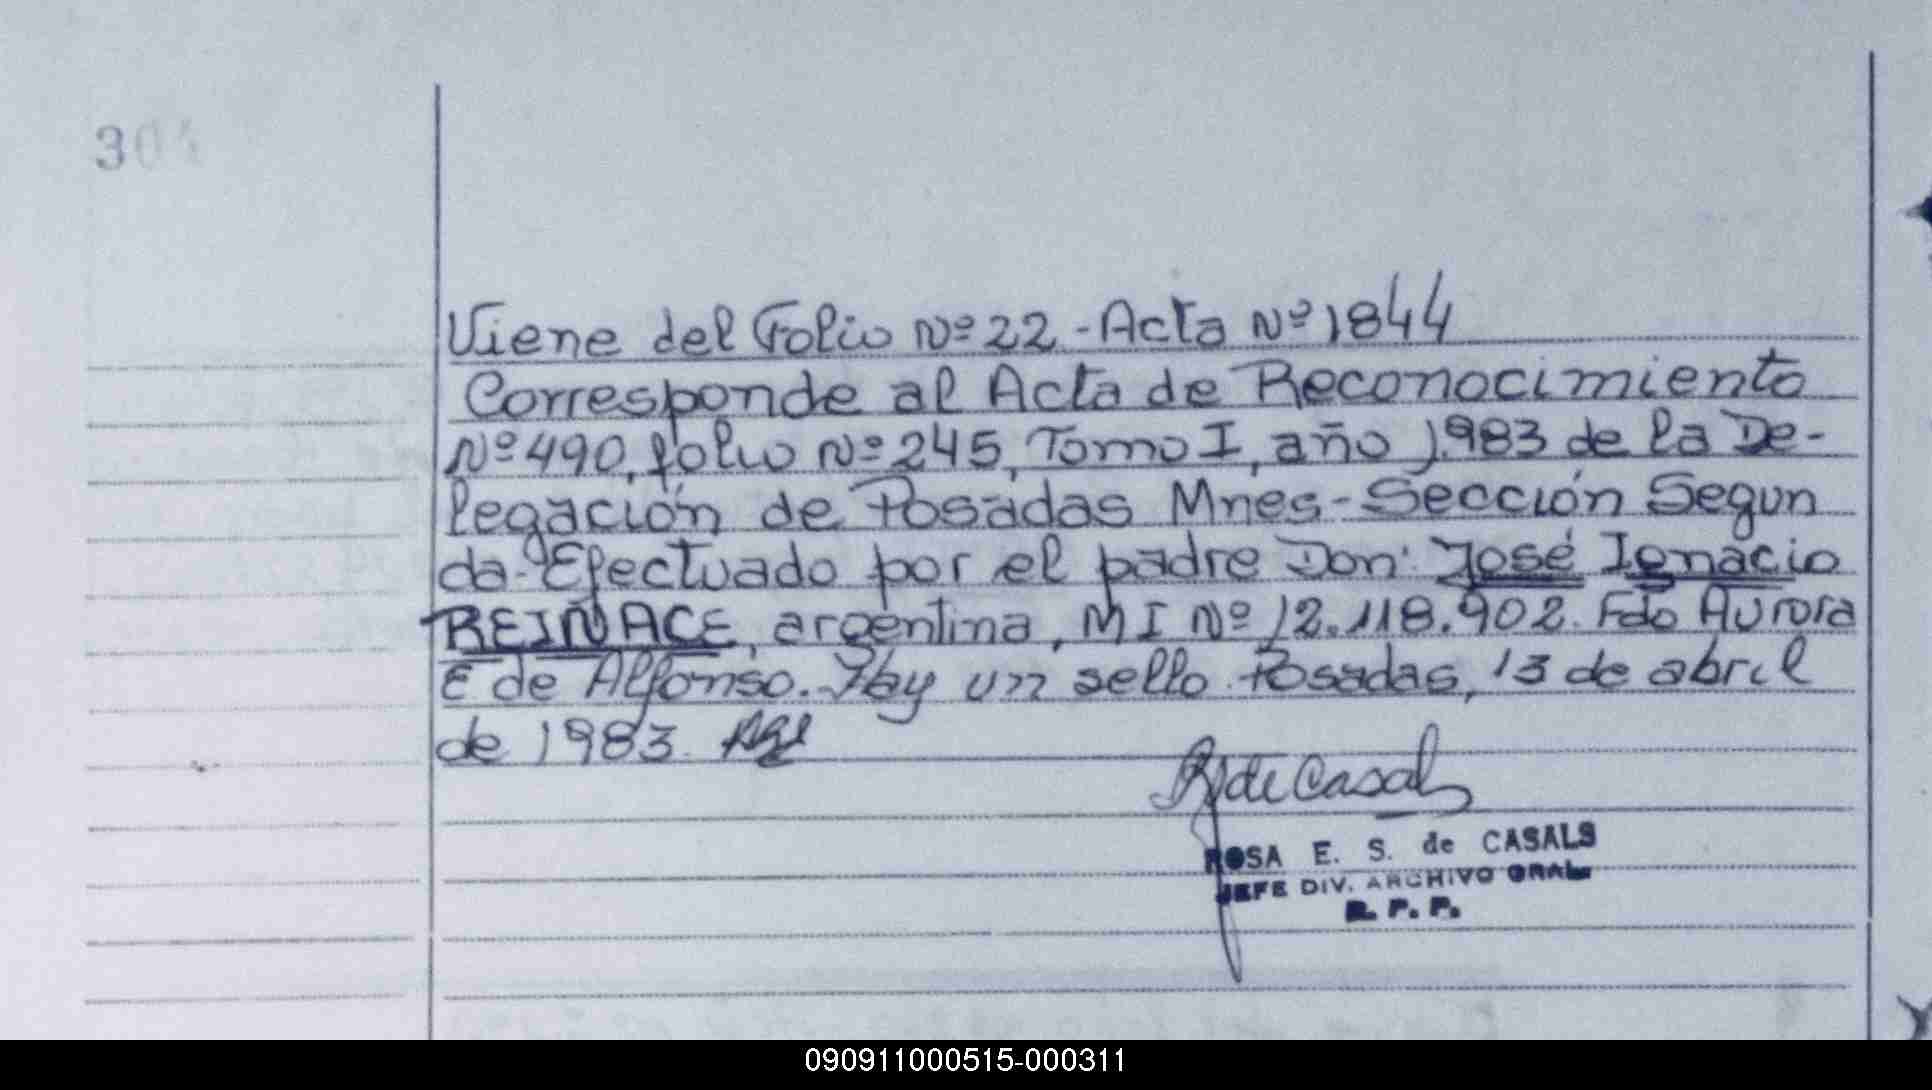 304
Viene del Folio Nº 22 - Acta Nº 1844
Corresponde al Acta de Reconocimiento
Nº 490, folio Nº 245, Tomo I, año 1.983 de la De-
legación de Posadas Mnes - Sección Segun
da - Efectuado por el padre Don: José Ignacio
REINACE, argentina, M I Nº 12.118.902. Fdo Aurora
E de Alfonso. Hay un sello. Posadas, 13 de abril
de 1983.
R de Casals
ROSA E. S. de CASALS
JEFE DIV. ARCHIVO GRAL.
R. P. P.
090911000515-000311